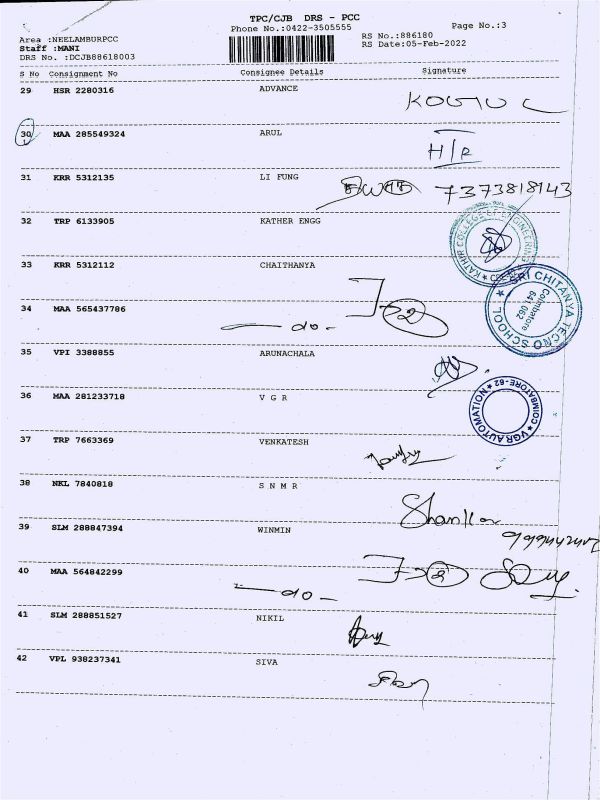 TPC/CJB DRS - PCC
Phone No.:0422-3505555
Page No.:3
Area :NEELAMBURPCC
RS No.:886180
Staff :MANI
RS Date:05-Feb-2022
DRS No. :DCJB88618003
S No Consignment No Consignee Details Signature
29 HSR 2280316 ADVANCE
30 MAA 285549324 ARUL
H/R
31 KRR 5312135 LI FUNG
7373818143
32 TRP 6133905 KATHER ENGG
KATHIR COLLEGE OF ENGINEERING
33 KRR 5312112 CHAITHANYA
SRI CHITANYA TECNO SCHOOL
Coimbatore
641 062
34 MAA 565437786
- do -
35 VPI 3388855 ARUNACHALA
36 MAA 281233718 V G R
VGR AUTOMATION
COIMBATORE-62
37 TRP 7663369 VENKATESH
38 NKL 7840818 S N M R
Shankar
39 SLM 288847394 WINMIN
40 MAA 564842299
- do -
41 SLM 288851527 NIKIL
42 VPL 938237341 SIVA